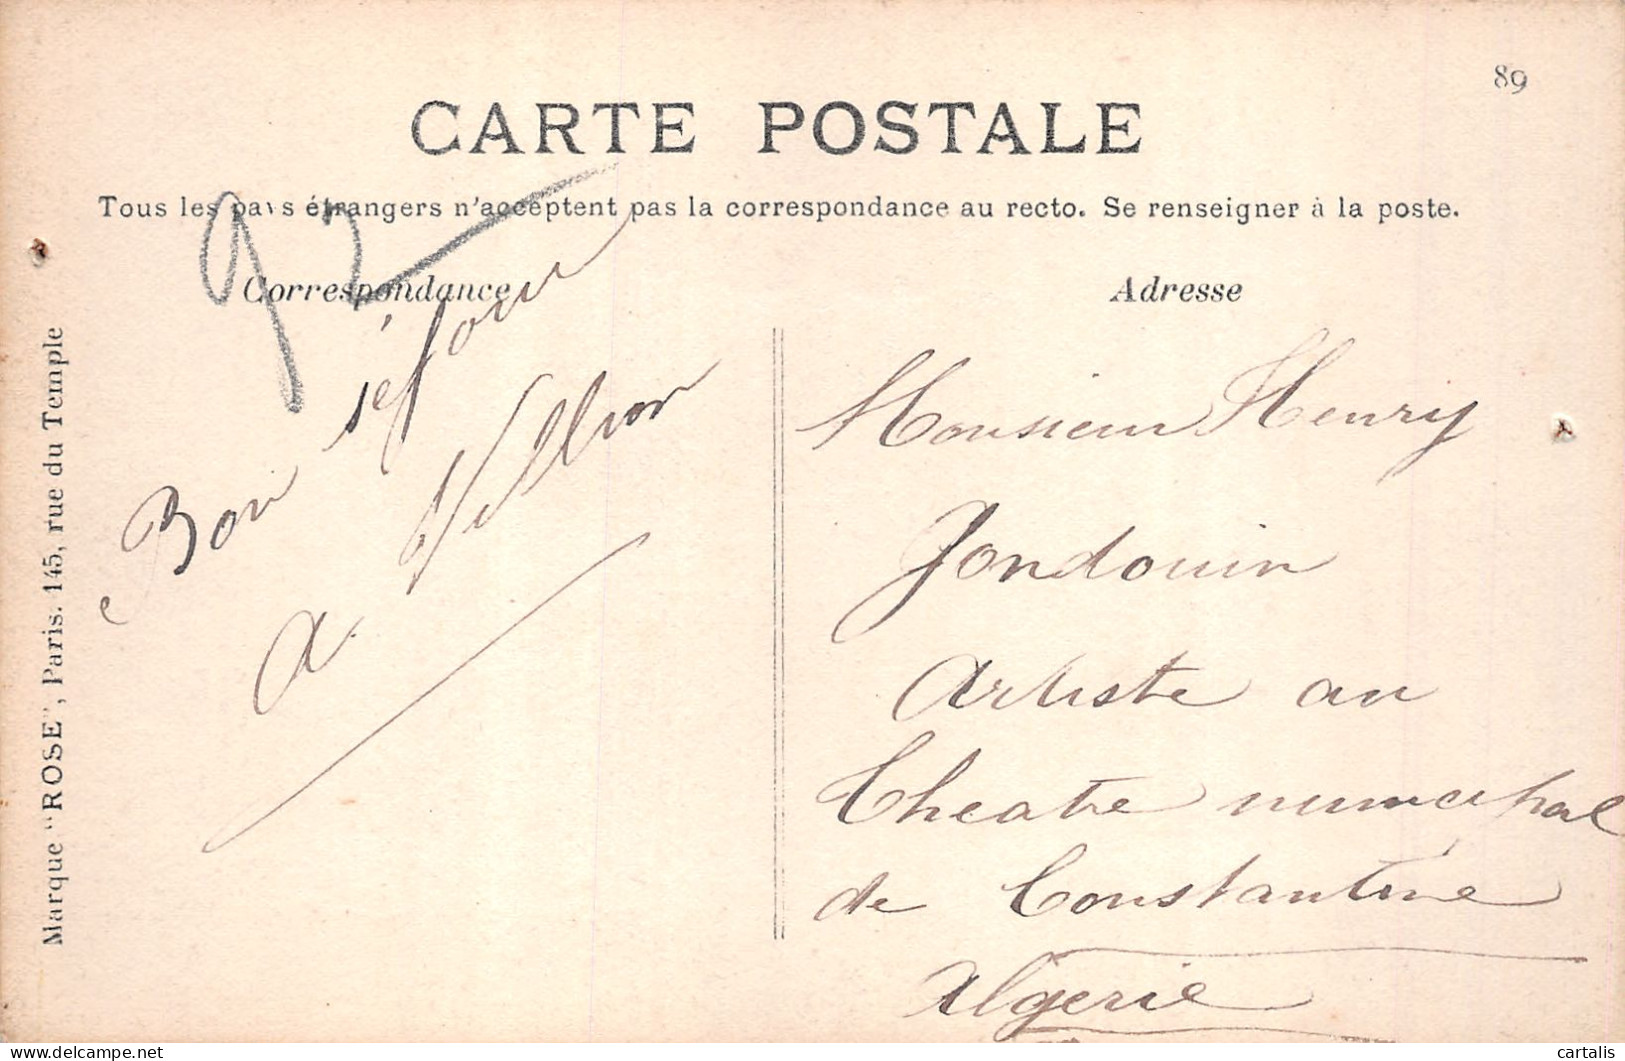 89
CARTE POSTALE
Tous les pays étrangers n'acceptent pas la correspondance au recto. Se renseigner à la poste.
Correspondance
Adresse
Marque "ROSE", Paris. 145, rue du Temple
Bon séjour
A
Monsieur Henry
Jondouin
Artiste au
Theatre municipal
de Constantine
Algerie
cartalis